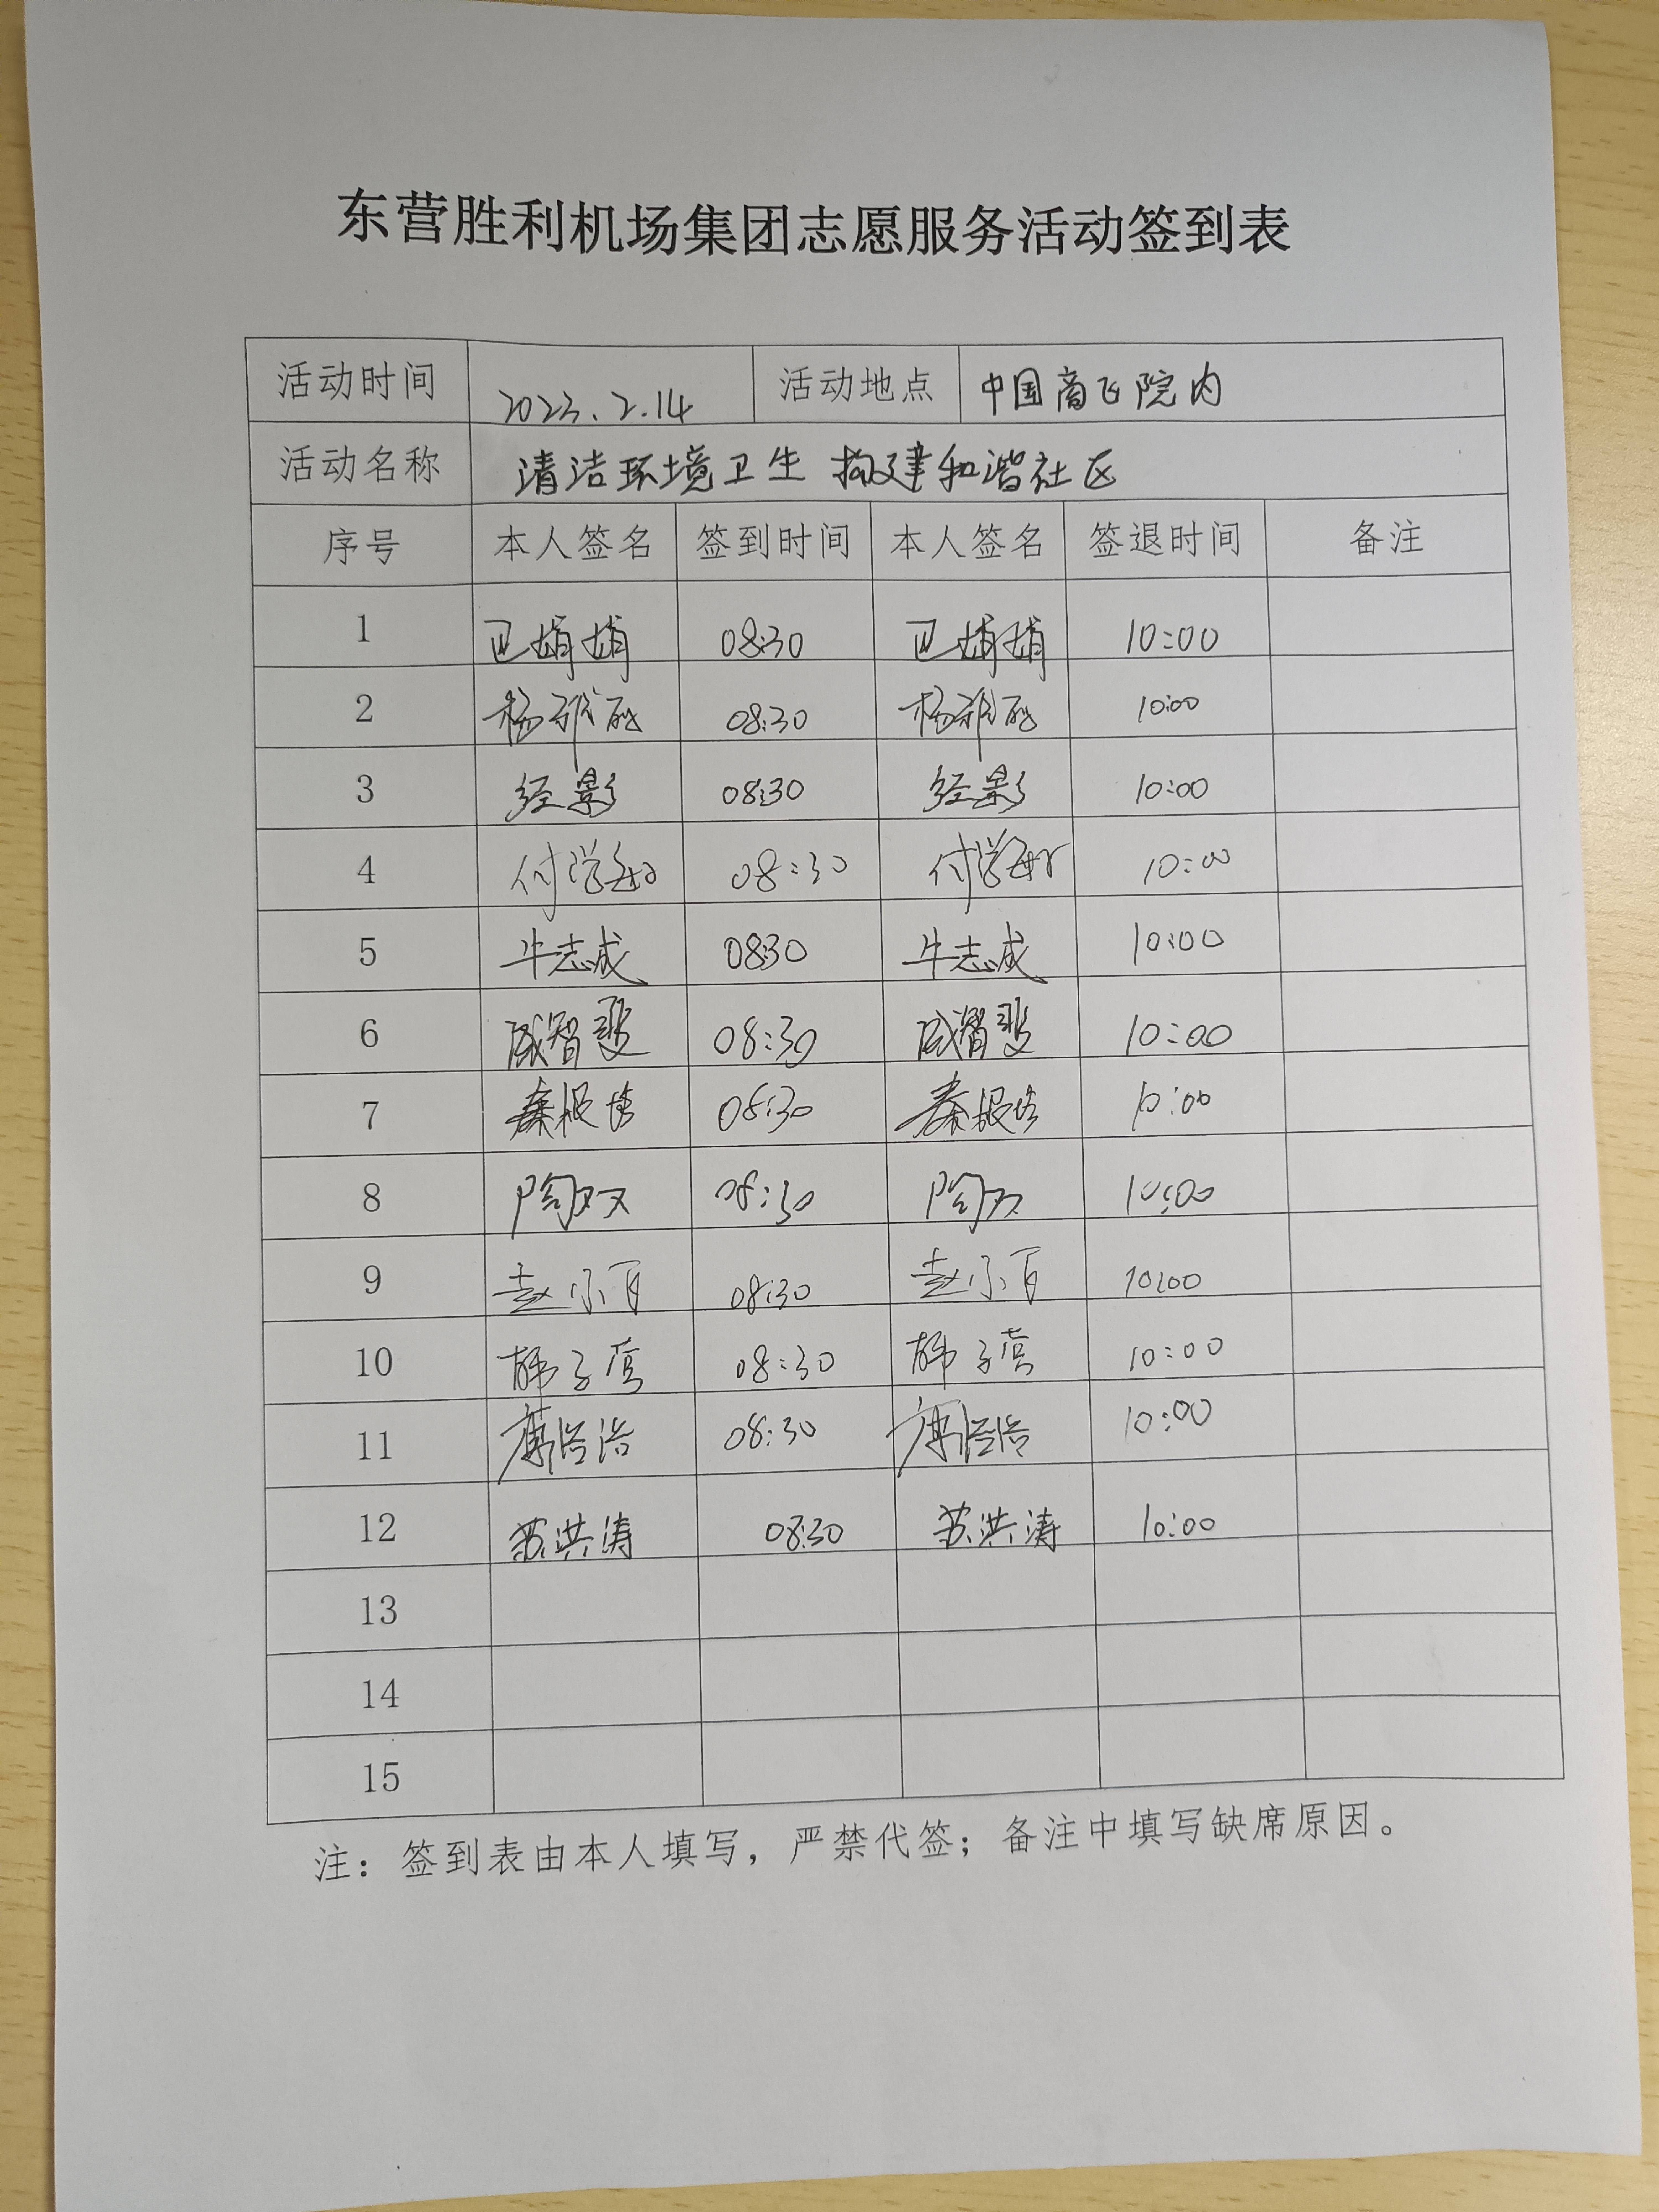 东营胜利机场集团志愿服务活动签到表
活动时间 2023.2.14 活动地点 中国商飞院内
活动名称 清洁环境卫生 构建和谐社区
序号 本人签名 签到时间 本人签名 签退时间 备注
1 娟娟 08:30 娟娟 10:00
2 杨雅 08:30 杨雅 10:00
3 经影 08:30 经影 10:00
4 付学 08:30 付学 10:00
5 牛志成 0830 牛志成 10:00
6 智斐 08:30 智斐 10:00
7 秦振 08:30 秦振 10:00
8 陶双 08:30 陶双 10:00
9 赵小百 08:30 赵小百 10:00
10 韩子莺 08:30 韩子莺 10:00
11 浩 08:30 浩 10:00
12 苏洪涛 08:30 苏洪涛 10:00
13
14
15
注：签到表由本人填写，严禁代签；备注中填写缺席原因。